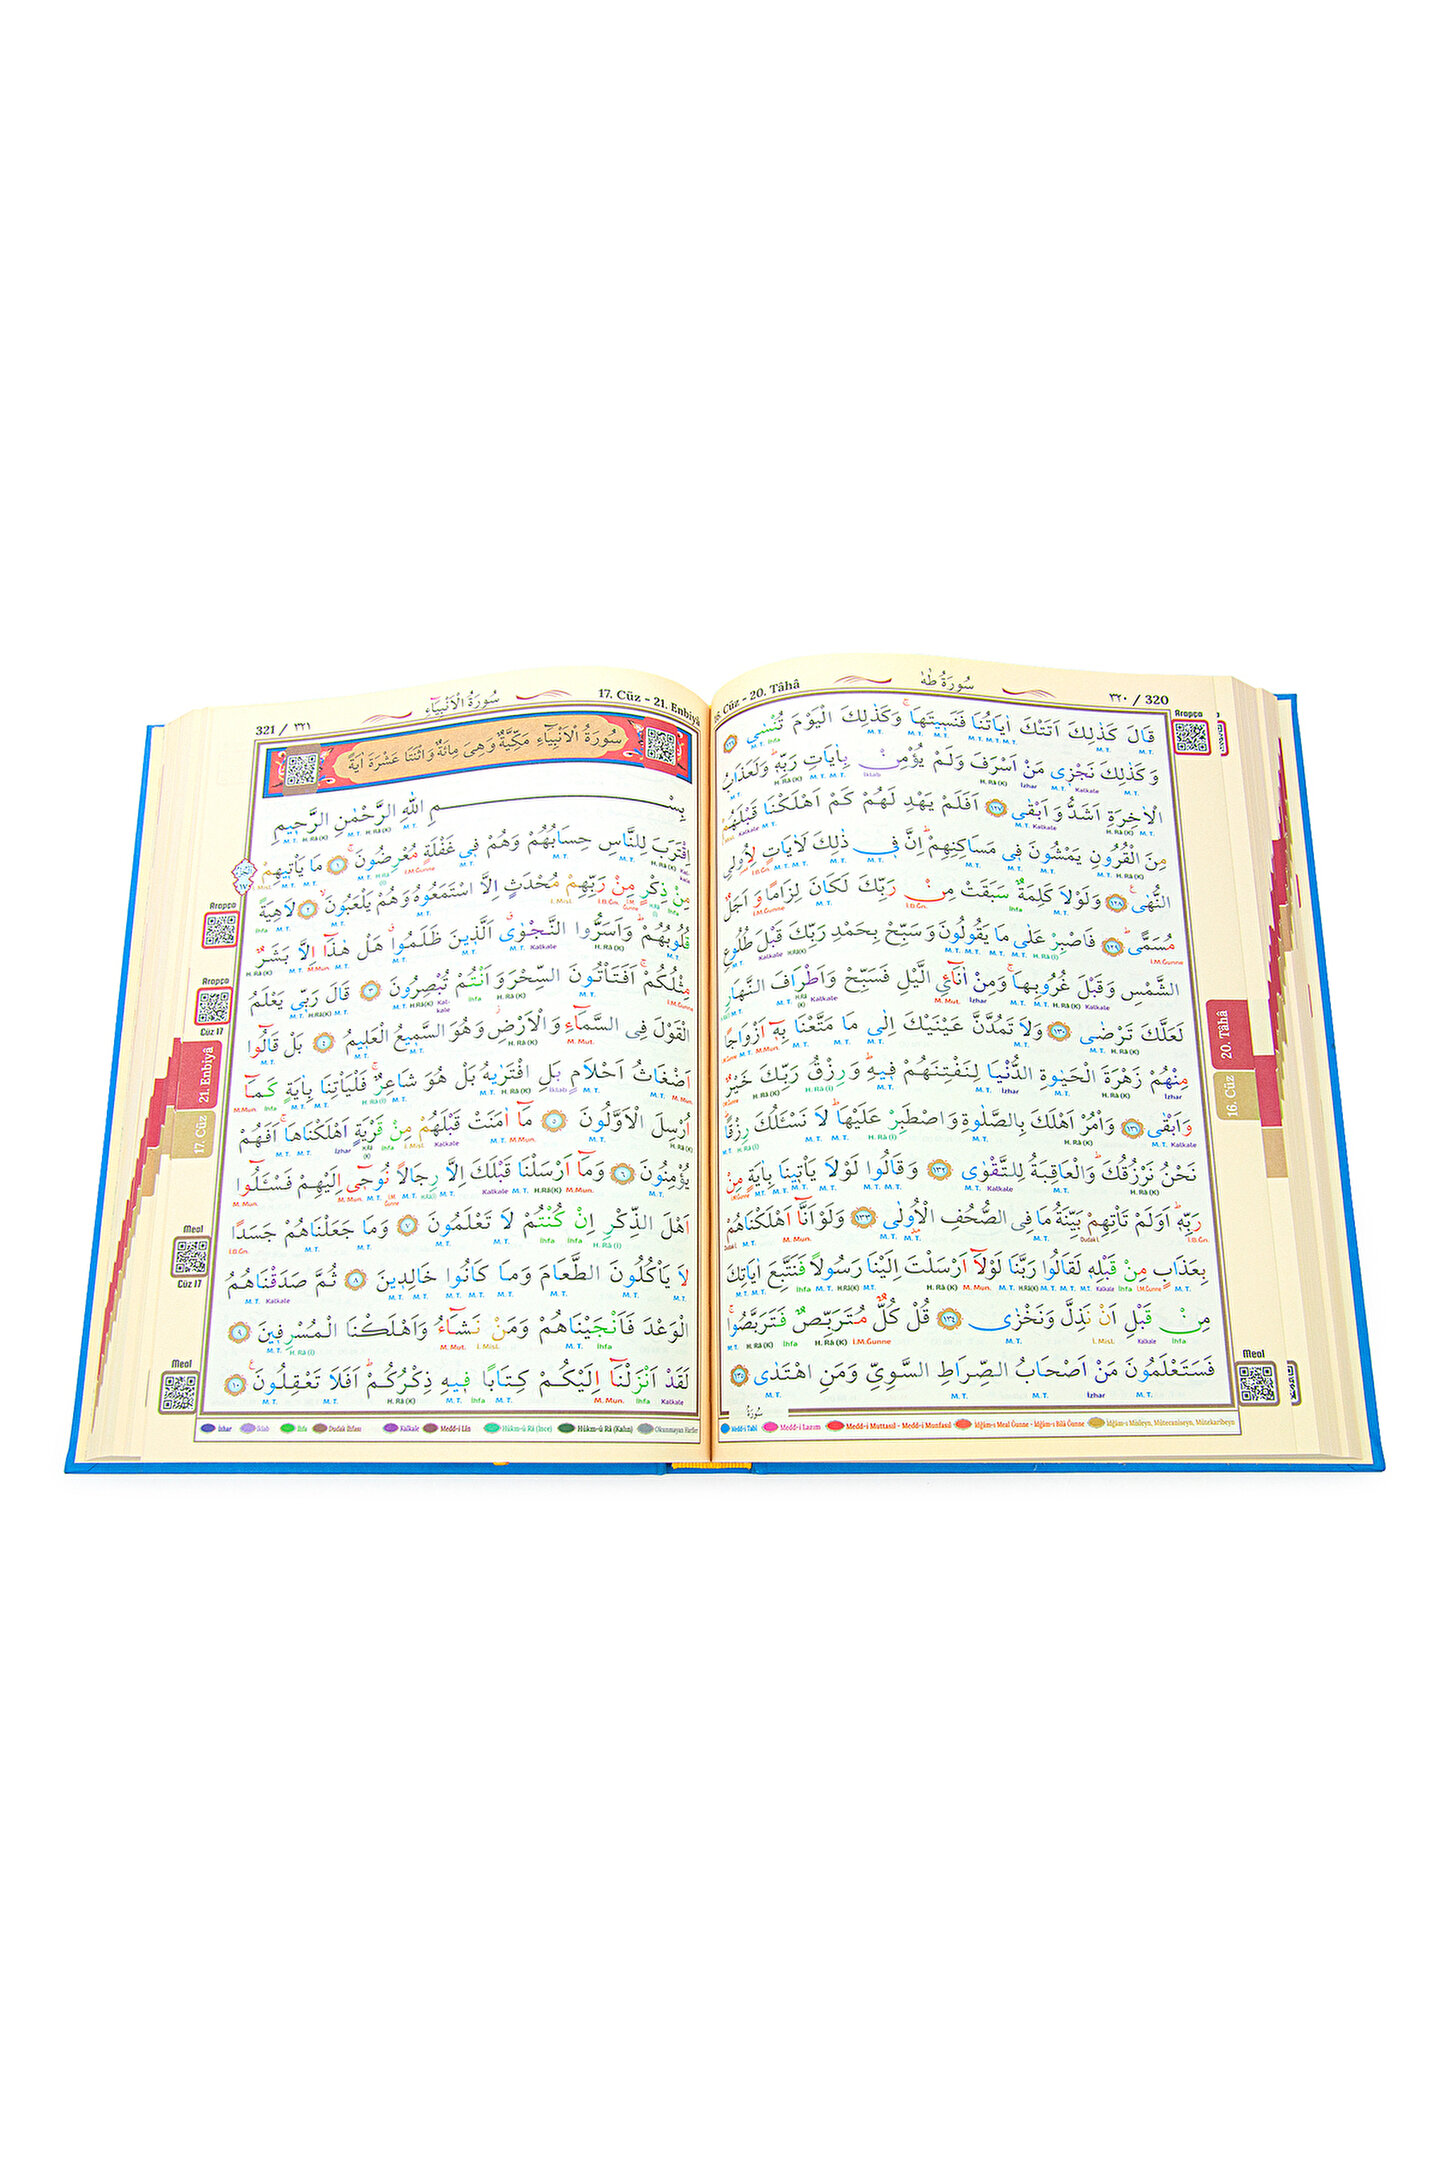 ٣٢٠ / 320
سُورَةُ طٰهٰ
16. Cüz - 20. Tâhâ
قَالَ كَذٰلِكَ اَتَتْكَ اٰيَاتُنَا فَنَسٖيتَهَاۚ وَكَذٰلِكَ الْيَوْمَ تُنْسٰى ﴿١٢٦﴾
وَكَذٰلِكَ نَجْزٖى مَنْ اَسْرَفَ وَلَمْ يُؤْمِنْ بِاٰيَاتِ رَبِّهٖۜ وَلَعَذَابُ
الْاٰخِرَةِ اَشَدُّ وَاَبْقٰى ﴿١٢٧﴾ اَفَلَمْ يَهْدِ لَهُمْ كَمْ اَهْلَكْنَا قَبْلَهُمْ
مِنَ الْقُرُونِ يَمْشُونَ فٖى مَسَاكِنِهِمْۜ اِنَّ فٖى ذٰلِكَ لَاٰيَاتٍ لِاُولِى
النُّهٰىۚ ﴿١٢٨﴾ وَلَوْلَا كَلِمَةٌ سَبَقَتْ مِنْ رَبِّكَ لَكَانَ لِزَامًا وَاَجَلٌ
مُسَمًّىۜ ﴿١٢٩﴾ فَاصْبِرْ عَلٰى مَا يَقُولُونَ وَسَبِّحْ بِحَمْدِ رَبِّكَ قَبْلَ طُلُوعِ
الشَّمْسِ وَقَبْلَ غُرُوبِهَاۚ وَمِنْ اٰنَآئِ الَّيْلِ فَسَبِّحْ وَاَطْرَافَ النَّهَارِ
لَعَلَّكَ تَرْضٰى ﴿١٣٠﴾ وَلَا تَمُدَّنَّ عَيْنَيْكَ اِلٰى مَا مَتَّعْنَا بِهٖٓ اَزْوَاجًا
مِنْهُمْ زَهْرَةَ الْحَيٰوةِ الدُّنْيَا لِنَفْتِنَهُمْ فٖيهِۜ وَرِزْقُ رَبِّكَ خَيْرٌ
وَاَبْقٰى ﴿١٣١﴾ وَأْمُرْ اَهْلَكَ بِالصَّلٰوةِ وَاصْطَبِرْ عَلَيْهَاۜ لَا نَسْـَٔلُكَ رِزْقًاۜ
نَحْنُ نَرْزُقُكَۜ وَالْعَاقِبَةُ لِلتَّقْوٰى ﴿١٣٢﴾ وَقَالُوا لَوْلَا يَأْتٖينَا بِاٰيَةٍ مِنْ
رَبِّهٖۜ اَوَلَمْ تَأْتِهِمْ بَيِّنَةُ مَا فِى الصُّحُفِ الْاُولٰى ﴿١٣٣﴾ وَلَوْ اَنَّٓا اَهْلَكْنَاهُمْ
بِعَذَابٍ مِنْ قَبْلِهٖ لَقَالُوا رَبَّنَا لَوْلَٓا اَرْسَلْتَ اِلَيْنَا رَسُولًا فَنَتَّبِعَ اٰيَاتِكَ
مِنْ قَبْلِ اَنْ نَذِلَّ وَنَخْزٰى ﴿١٣٤﴾ قُلْ كُلٌّ مُتَرَبِّصٌ فَتَرَبَّصُواۚ
فَسَتَعْلَمُونَ مَنْ اَصْحَابُ الصِّرَاطِ السَّوِىِّ وَمَنِ اهْتَدٰى ﴿١٣٥﴾
سُورَةُ
Medd-i Tabî Medd-i Lazım Medd-i Muttasıl - Medd-i Munfasıl İdğam-ı Meal Ğunne - İdğam-ı Bilâ Ğunne İdğam-ı Misleyn, Mütecaniseyn, Mütekaribeyn
Arapça
20. Tâhâ
16. Cüz
Meal
17. Cüz - 21. Enbiyâ
سُورَةُ الْاَنْبِيَٓاءِ
321 / ٣٢١
سُورَةُ الْاَنْبِيَٓاءِ مَكِّيَّةٌ وَهِىَ مِائَةٌ وَاثْنَتَا عَشْرَةَ اٰيَةً
بِسْمِ اللّٰهِ الرَّحْمٰنِ الرَّحٖيمِ
اِقْتَرَبَ لِلنَّاسِ حِسَابُهُمْ وَهُمْ فٖى غَفْلَةٍ مُعْرِضُونَۚ ﴿١﴾ مَا يَأْتٖيهِمْ
مِنْ ذِكْرٍ مِنْ رَبِّهِمْ مُحْدَثٍ اِلَّا اسْتَمَعُوهُ وَهُمْ يَلْعَبُونَۙ ﴿٢﴾ لَاهِيَةً
قُلُوبُهُمْۜ وَاَسَرُّوا النَّجْوٰىۗ اَلَّذٖينَ ظَلَمُواۗ هَلْ هٰذَٓا اِلَّا بَشَرٌ
مِثْلُكُمْۚ اَفَتَأْتُونَ السِّحْرَ وَاَنْتُمْ تُبْصِرُونَ ﴿٣﴾ قَالَ رَبّٖى يَعْلَمُ
الْقَوْلَ فِى السَّمَٓاءِ وَالْاَرْضِۘ وَهُوَ السَّمٖيعُ الْعَلٖيمُ ﴿٤﴾ بَلْ قَالُٓوا
اَضْغَاثُ اَحْلَامٍ بَلِ افْتَرٰيهُ بَلْ هُوَ شَاعِرٌۚ فَلْيَأْتِنَا بِاٰيَةٍ كَمَٓا
اُرْسِلَ الْاَوَّلُونَ ﴿٥﴾ مَٓا اٰمَنَتْ قَبْلَهُمْ مِنْ قَرْيَةٍ اَهْلَكْنَاهَاۚ اَفَهُمْ
يُؤْمِنُونَ ﴿٦﴾ وَمَٓا اَرْسَلْنَا قَبْلَكَ اِلَّا رِجَالًا نُوحٖٓى اِلَيْهِمْ فَسْـَٔلُٓوا
اَهْلَ الذِّكْرِ اِنْ كُنْتُمْ لَا تَعْلَمُونَ ﴿٧﴾ وَمَا جَعَلْنَاهُمْ جَسَدًا
لَا يَأْكُلُونَ الطَّعَامَ وَمَا كَانُوا خَالِدٖينَ ﴿٨﴾ ثُمَّ صَدَقْنَاهُمُ
الْوَعْدَ فَاَنْجَيْنَاهُمْ وَمَنْ نَشَٓاءُ وَاَهْلَكْنَا الْمُسْرِفٖينَ ﴿٩﴾
لَقَدْ اَنْزَلْنَٓا اِلَيْكُمْ كِتَابًا فٖيهِ ذِكْرُكُمْۜ اَفَلَا تَعْقِلُونَۚ ﴿١٠﴾
İzhar İklab İhfa Dudak İhfası Kalkale Medd-i Lîn Hükm-ü Râ (İnce) Hükm-ü Râ (Kalın) Okunmayan Harfler
Arapça
Arapça
Cüz 17
21. Enbiyâ
17. Cüz
Meal
Cüz 17
Meal